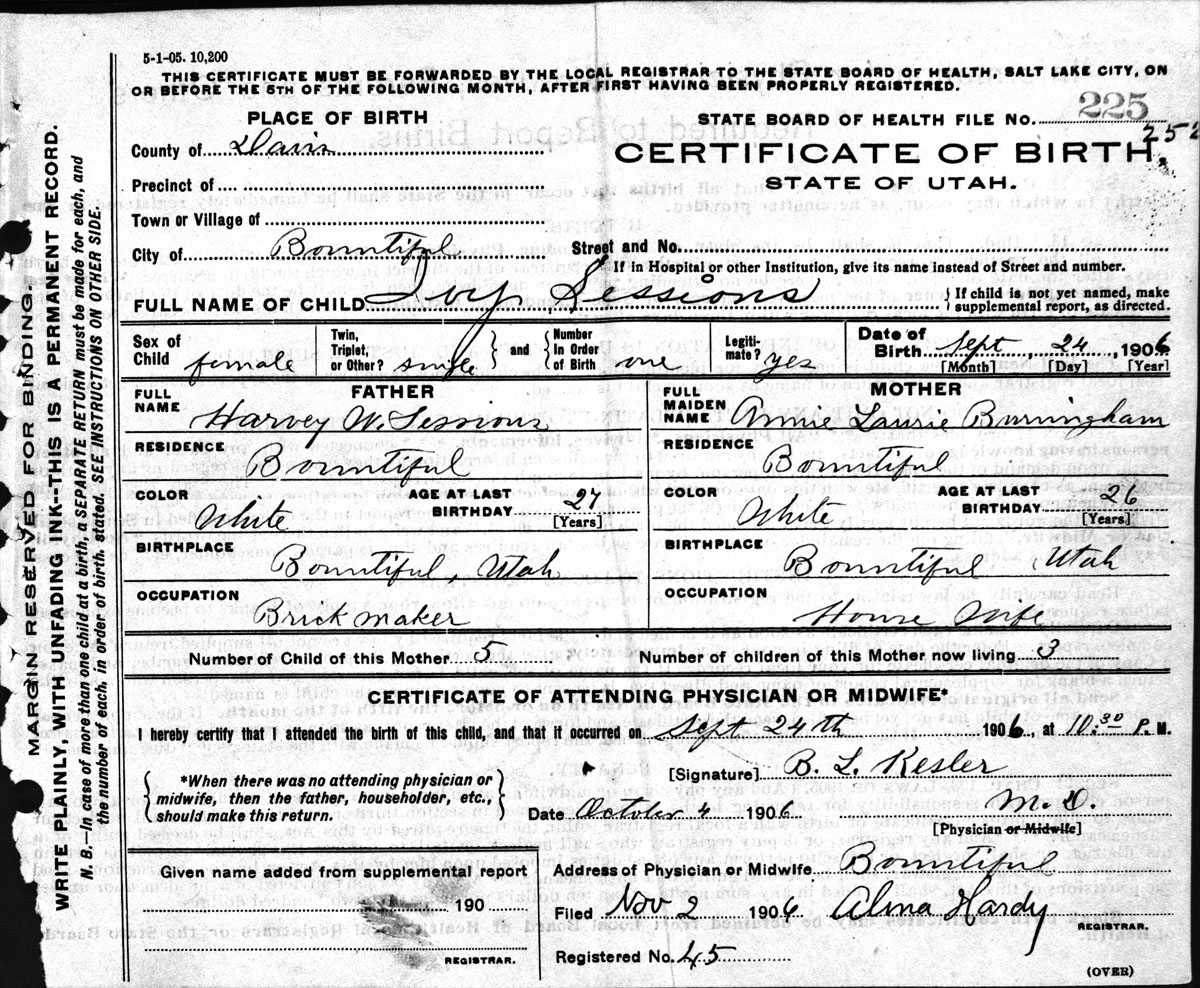 5-1-05. 10,200
THIS CERTIFICATE MUST BE FORWARDED BY THE LOCAL REGISTRAR TO THE STATE BOARD OF HEALTH, SALT LAKE CITY, ON
OR BEFORE THE 5TH OF THE FOLLOWING MONTH, AFTER FIRST HAVING BEEN PROPERLY REGISTERED.
PLACE OF BIRTH
STATE BOARD OF HEALTH FILE No. 225
County of Davis
CERTIFICATE OF BIRTH
STATE OF UTAH.
Precinct of
Town or Village of
City of Bountiful Street and No.
If in Hospital or other Institution, give its name instead of Street and number.
FULL NAME OF CHILD Ivy Sessions { If child is not yet named, make
supplemental report, as directed.
Sex of Child female Twin, Triplet, or Other? single and Number in Order of Birth one Legiti-mate? yes Date of Birth Sept, 24, 1906
[Month] [Day] [Year]
FATHER MOTHER
FULL NAME Harvey W. Sessions FULL MAIDEN NAME Annie Laurie Burningham
RESIDENCE Bountiful RESIDENCE Bountiful
COLOR White AGE AT LAST BIRTHDAY 27 [Years] COLOR White AGE AT LAST BIRTHDAY 26 [Years]
BIRTHPLACE Bountiful, Utah BIRTHPLACE Bountiful, Utah
OCCUPATION Brick maker OCCUPATION House Wife
Number of Child of this Mother 5 Number of children of this Mother now living 3
CERTIFICATE OF ATTENDING PHYSICIAN OR MIDWIFE*
I hereby certify that I attended the birth of this child, and that it occurred on Sept 24th 1906, at 10.30 P. M.
{ *When there was no attending physician or
midwife, then the father, householder, etc.,
should make this return. }
[Signature] B. L. Kesler
Date October 4 1906 M. D.
[Physician or Midwife]
Given name added from supplemental report
190
REGISTRAR.
Address of Physician or Midwife Bountiful
Filed Nov 2 1906 Alma Hardy
REGISTRAR.
Registered No. 45
(OVER)
MARGIN RESERVED FOR BINDING
WRITE PLAINLY, WITH UNFADING INK—THIS IS A PERMANENT RECORD.
N. B.—In case of more than one child at a birth, a SEPARATE RETURN must be made for each, and
the number of each, in order of birth, stated. SEE INSTRUCTIONS ON OTHER SIDE.